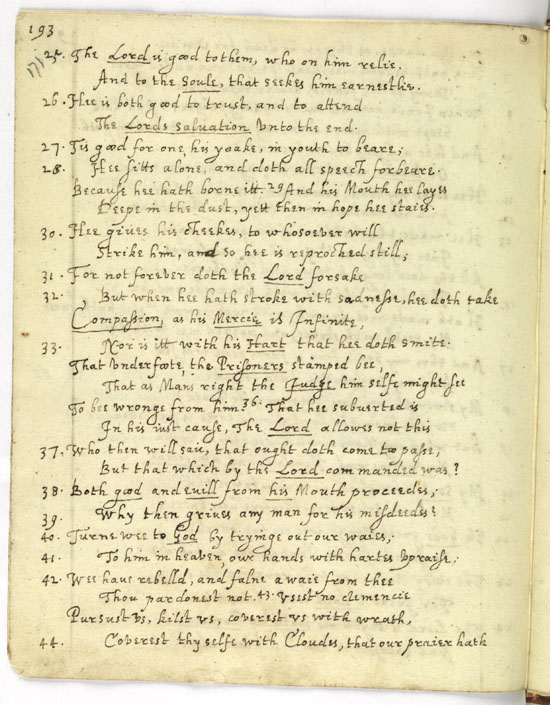 193
25. The Lord is good to them, who on him relie.
And to the Soule, that seekes him earnestlie.
26. Hee is both good to trust, and to attend
The Lords salvation vnto the end.
27. Tis good for one, his yoake, in youth to beare;
28. Hee sitts alone, and doth all speech forbeare.
Because hee hath borne itt. 29 And his Mouth hee layes
Deepe in the dust, yett then in hope hee staies.
30. Hee giues his cheekes, to whosoever will
Strike him, and so hee is reproched still;
31. For not forever doth the Lord forsake
32. But when hee hath stroke with sadnesse, hee doth take
Compassion, as his Mercie is Infinite,
33. Nor is itt with his Hart that hee doth smite.
That vnderfoote, the Prisoners stamped bee,
That as Mans right the Judge him selfe might see
To bee wronge from him. 36. That hee subuerted is
In his iust cause, The Lord allowes not this
37. Who then will say, that ought doth come to passe,
But that which by the Lord commanded was?
38. Both good and euill from his Mouth proceedes,
39. Why then grieves any man for his misdeedes?
40. Turne wee to God by tryinge out our waies,
41. To him in heaven, our hands with hartes vpraise,
42. Wee haue rebelld, and falne a waie from thee
Thou pardonest not. 43. Vsest no clemencie
Pursust vs, kilst vs, coverest vs with wrath,
44. Coverest thy selfe with Cloudes, that our praier hath